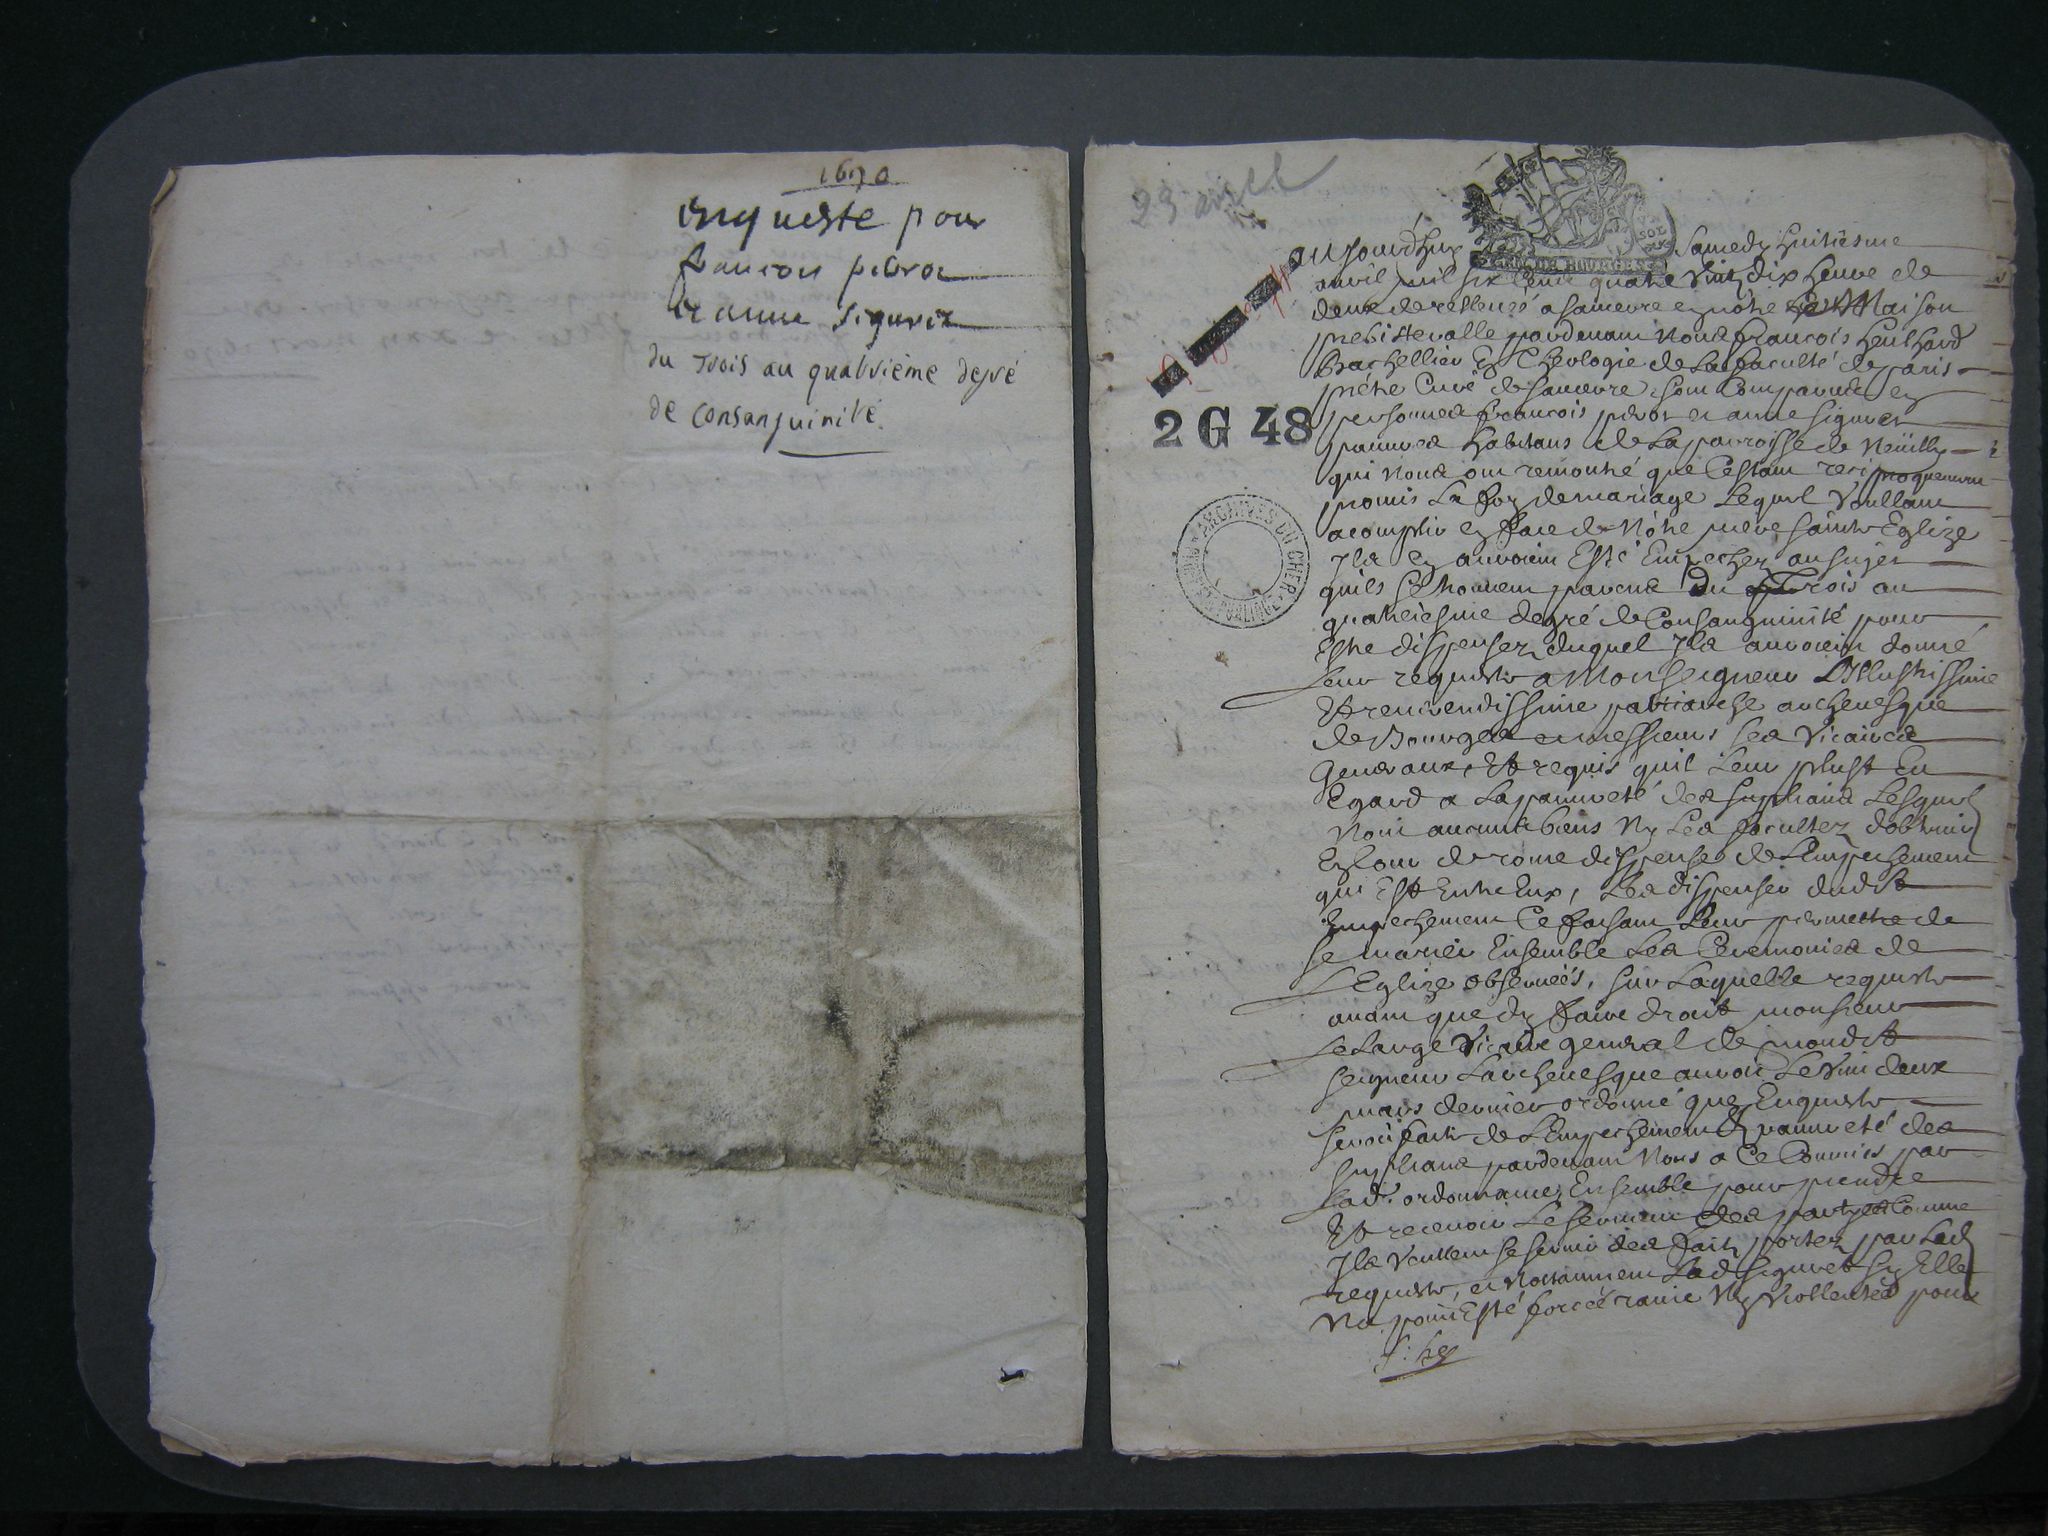 1690
enqueste pour
francois pivrot
et anne siguret
du trois au quatrième degré
de consanguinité
23 avril
2 G 48
ARCHIVES DU CHER
SOL
GEN. DE BOURGES
aujourdhuy samedy huitiesme
avril mil six cent quatre vint dix heure de
deux de rellevée a sancerre en notre Maison
presbiteralle pardevant Nous francois heulhard
Bachellier En Theologie de la faculté de paris
prêtre Curé de sancerre, sont Comparus en
personnes francois pivrot et anne siguret
pauvres habitans de La parroisse de Neuilly
qui Nous ont remontré que Cestant reciproquement
promis La foy de mariage Lequel Voullant
acomplir en face de Nôtre mere sainte Eglize
Ils En auroient Esté Empechez au sujet
quils se trouvent parens du Trois au
quatriesme degré de Consanguinité pour
Estre dispensez duquel Ils auroient donné
Leur requeste a Monseigneur L'Illustrissime
Et reverendissime patriarche archevesque
de Bourges et messieurs ses Vicaires
Generaux, Et requis quil Leur plust En
Egard a La pauvreté des supliants Lesquels
Nont aucuns biens Ny Les facultez dobtenir
En Cour de rome dispense de L'Empechement
qui Est Entre Eux, Les dispenser dudit
Empechement Ce faisant Leur permettre de
se marier Ensemble Les Ceremonies de
L'Eglize observées, sur Laquelle requeste
avant que dy faire droit monsieur
Vicaire general de mondit
seigneur Larchevesque auroit Le Vint deux
mars dernier ordonné que Enqueste
seroit faite de L'Empechement Et pauvreté des
supliants pardevant Nous a Ce Commis par
Lad. ordonnance, Ensemble pour prendre
Et recevoir Le serment des partyes Comme
Ils Veullent se servir des faits portez par Lad
requeste, et Notamment Lad siguret sy Elle
Na point Esté forcée ravie Ny Viollentée pour